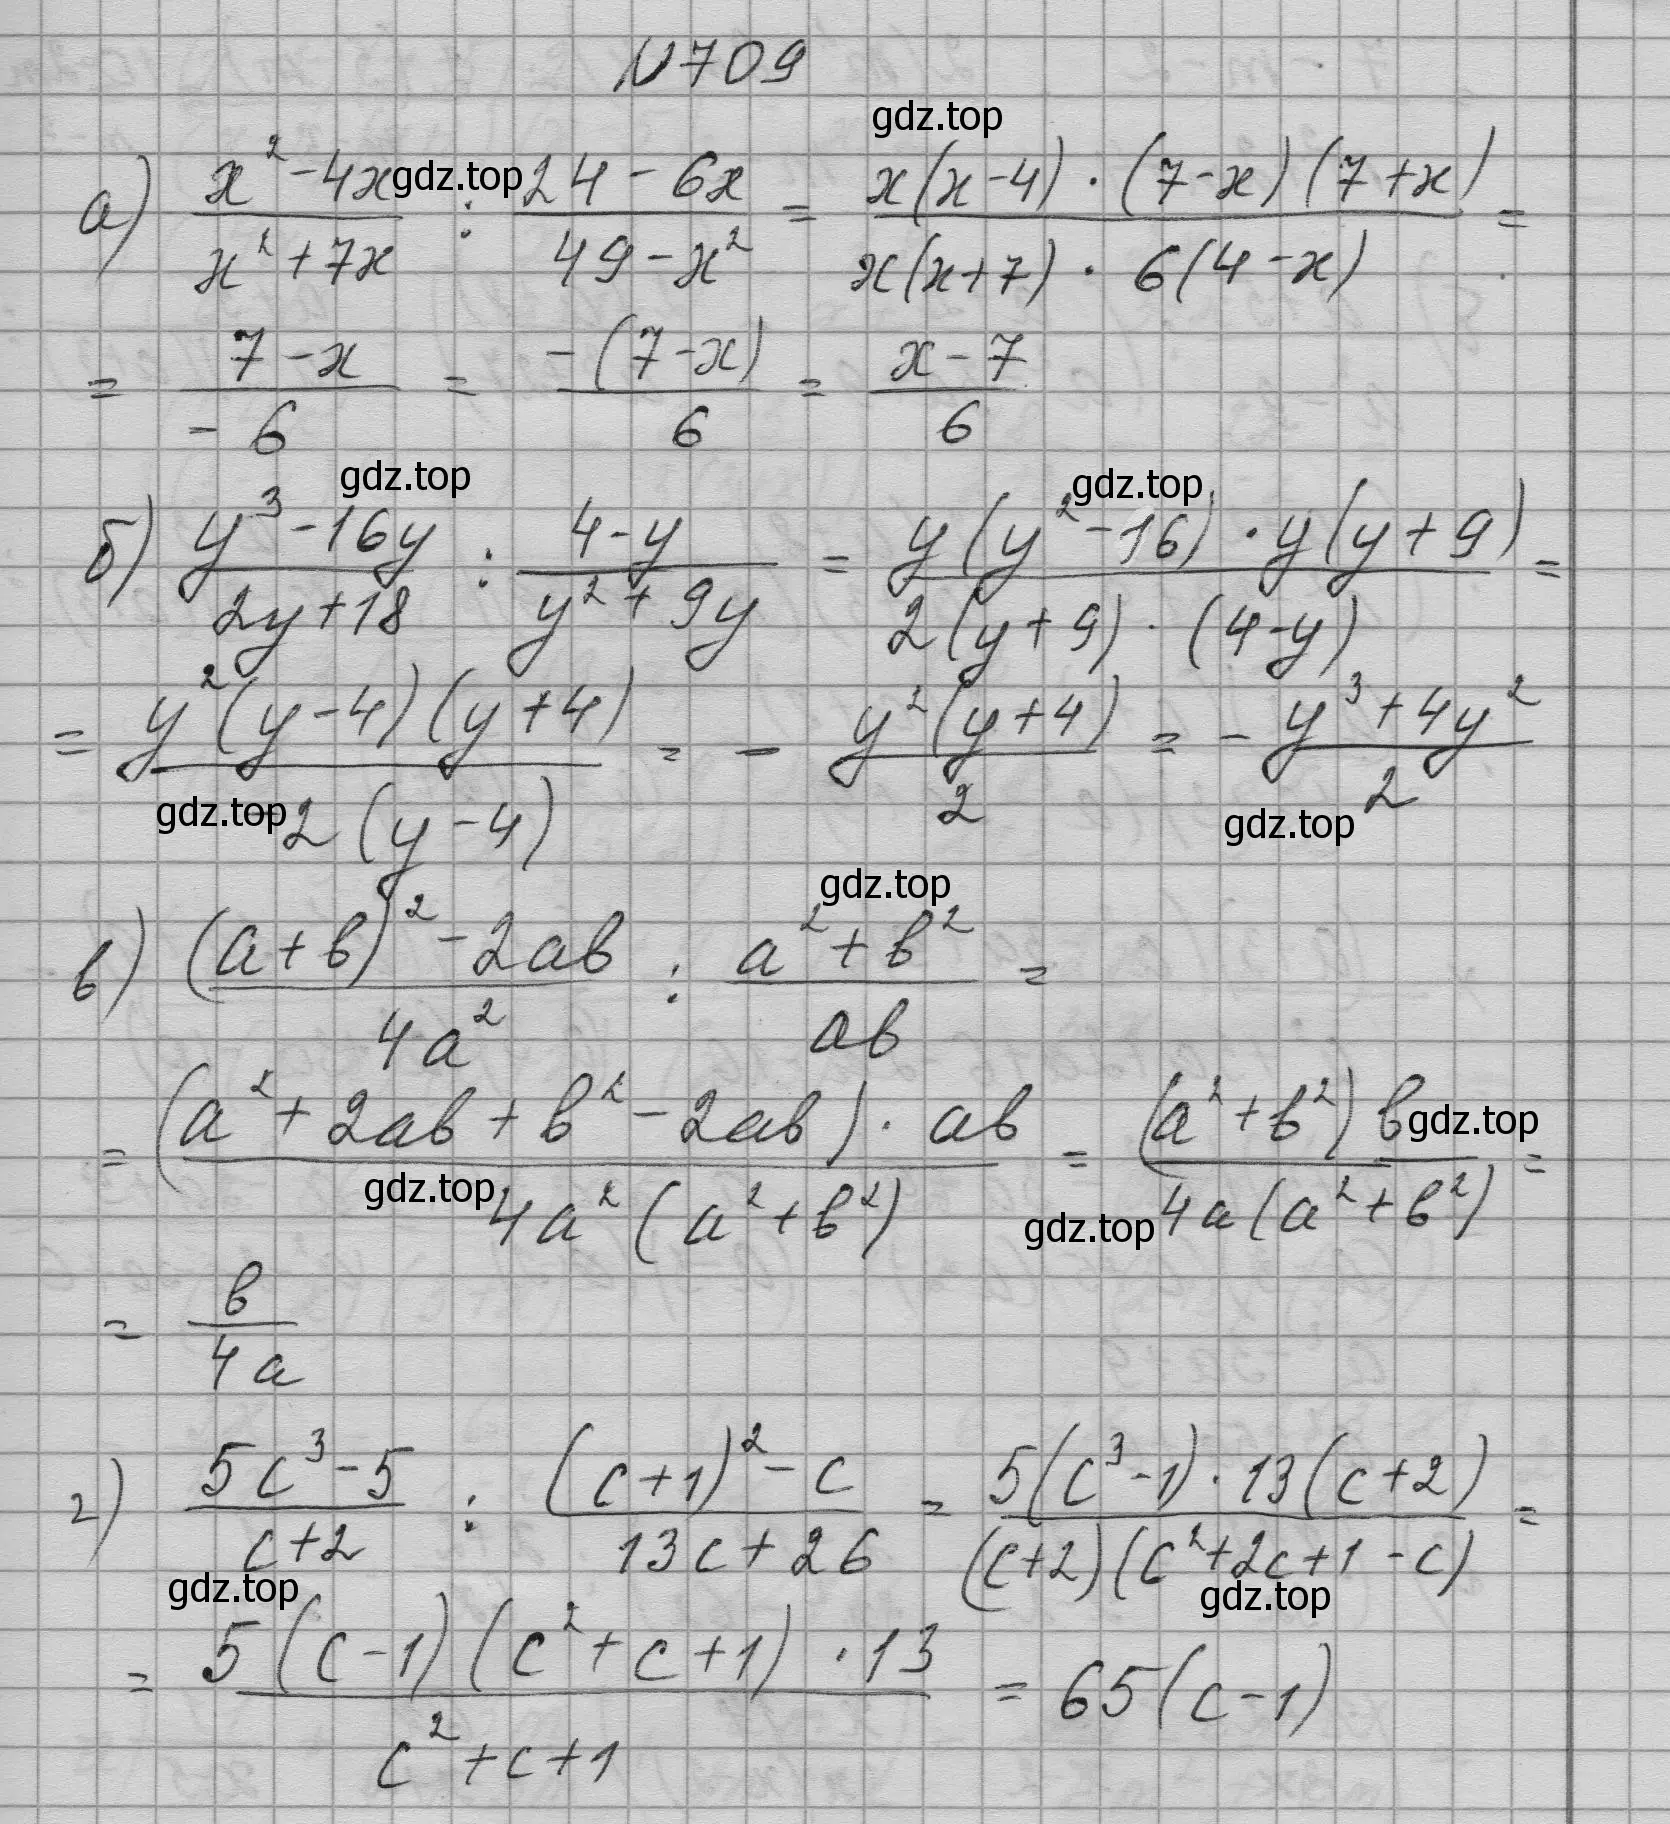 N709
gdz.top
а) (x² - 4x)/(x² + 7x) : (24 - 6x)/(49 - x²) = (x(x - 4) · (7 - x)(7 + x))/(x(x + 7) · 6(4 - x)) =
gdz.top
= (7 - x)/(-6) = (-(7 - x))/6 = (x - 7)/6
gdz.top gdz.top
б) (y³ - 16y)/(2y + 18) : (4 - y)/(y² + 9y) = (y(y² - 16) · y(y + 9))/(2(y + 9) · (4 - y)) =
= (y²(y - 4)(y + 4))/(-2(y - 4)) = - (y²(y + 4))/2 = - (y³ + 4y²)/2
gdz.top gdz.top
gdz.top
в) ((a + b)² - 2ab)/(4a²) : (a² + b²)/(ab) =
= ((a² + 2ab + b² - 2ab) · ab)/(4a²(a² + b²)) = ((a² + b²) b)/(4a(a² + b²)) =
gdz.top gdz.top gdz.top
= b/(4a)
г) (5c³ - 5)/(c + 2) : ((c + 1)² - c)/(13c + 26) = (5(c³ - 1) · 13(c + 2))/((c + 2)(c² + 2c + 1 - c)) =
gdz.top gdz.top
= (5(c - 1)(c² + c + 1) · 13)/(c² + c + 1) = 65(c - 1)